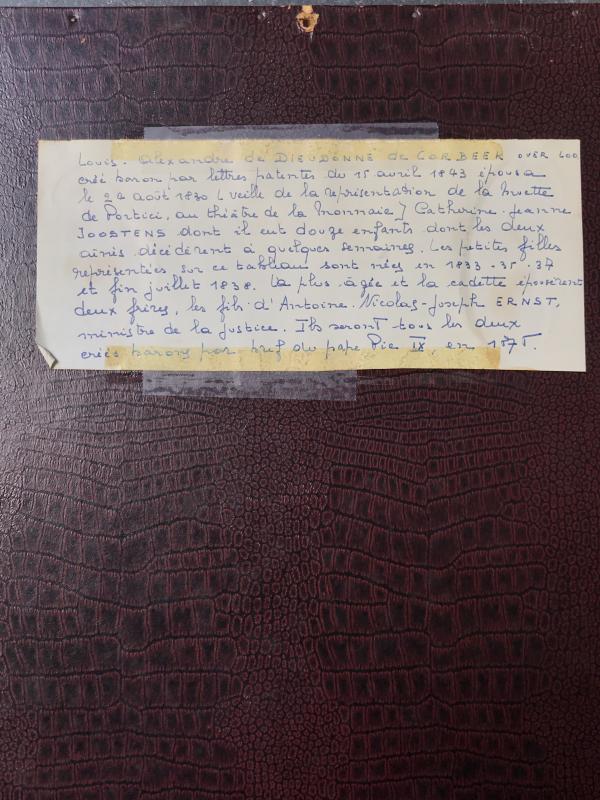 Louis-Alexandre de DIEUDONNÉ de CORBEEK OVER LOO
créé baron par lettres patentes du 15 avril 1843 épousa
le 24 août 1830 (veille de la représentation de la Muette
de Portici, au théâtre de la Monnaie) Catherine-Jeanne
JOOSTENS dont il eut douze enfants dont les deux
ainés décédèrent à quelques semaines. Les petites filles
représentées sur ce tableau sont nées en 1833-35-37
et fin juillet 1838. La plus agée et la cadette épousèrent
deux frères, les fils d'Antoine-Nicolas-Joseph ERNST,
ministre de la justice. Ils seront tous les deux
créés barons par bref du pape Pie IX, en 1875.